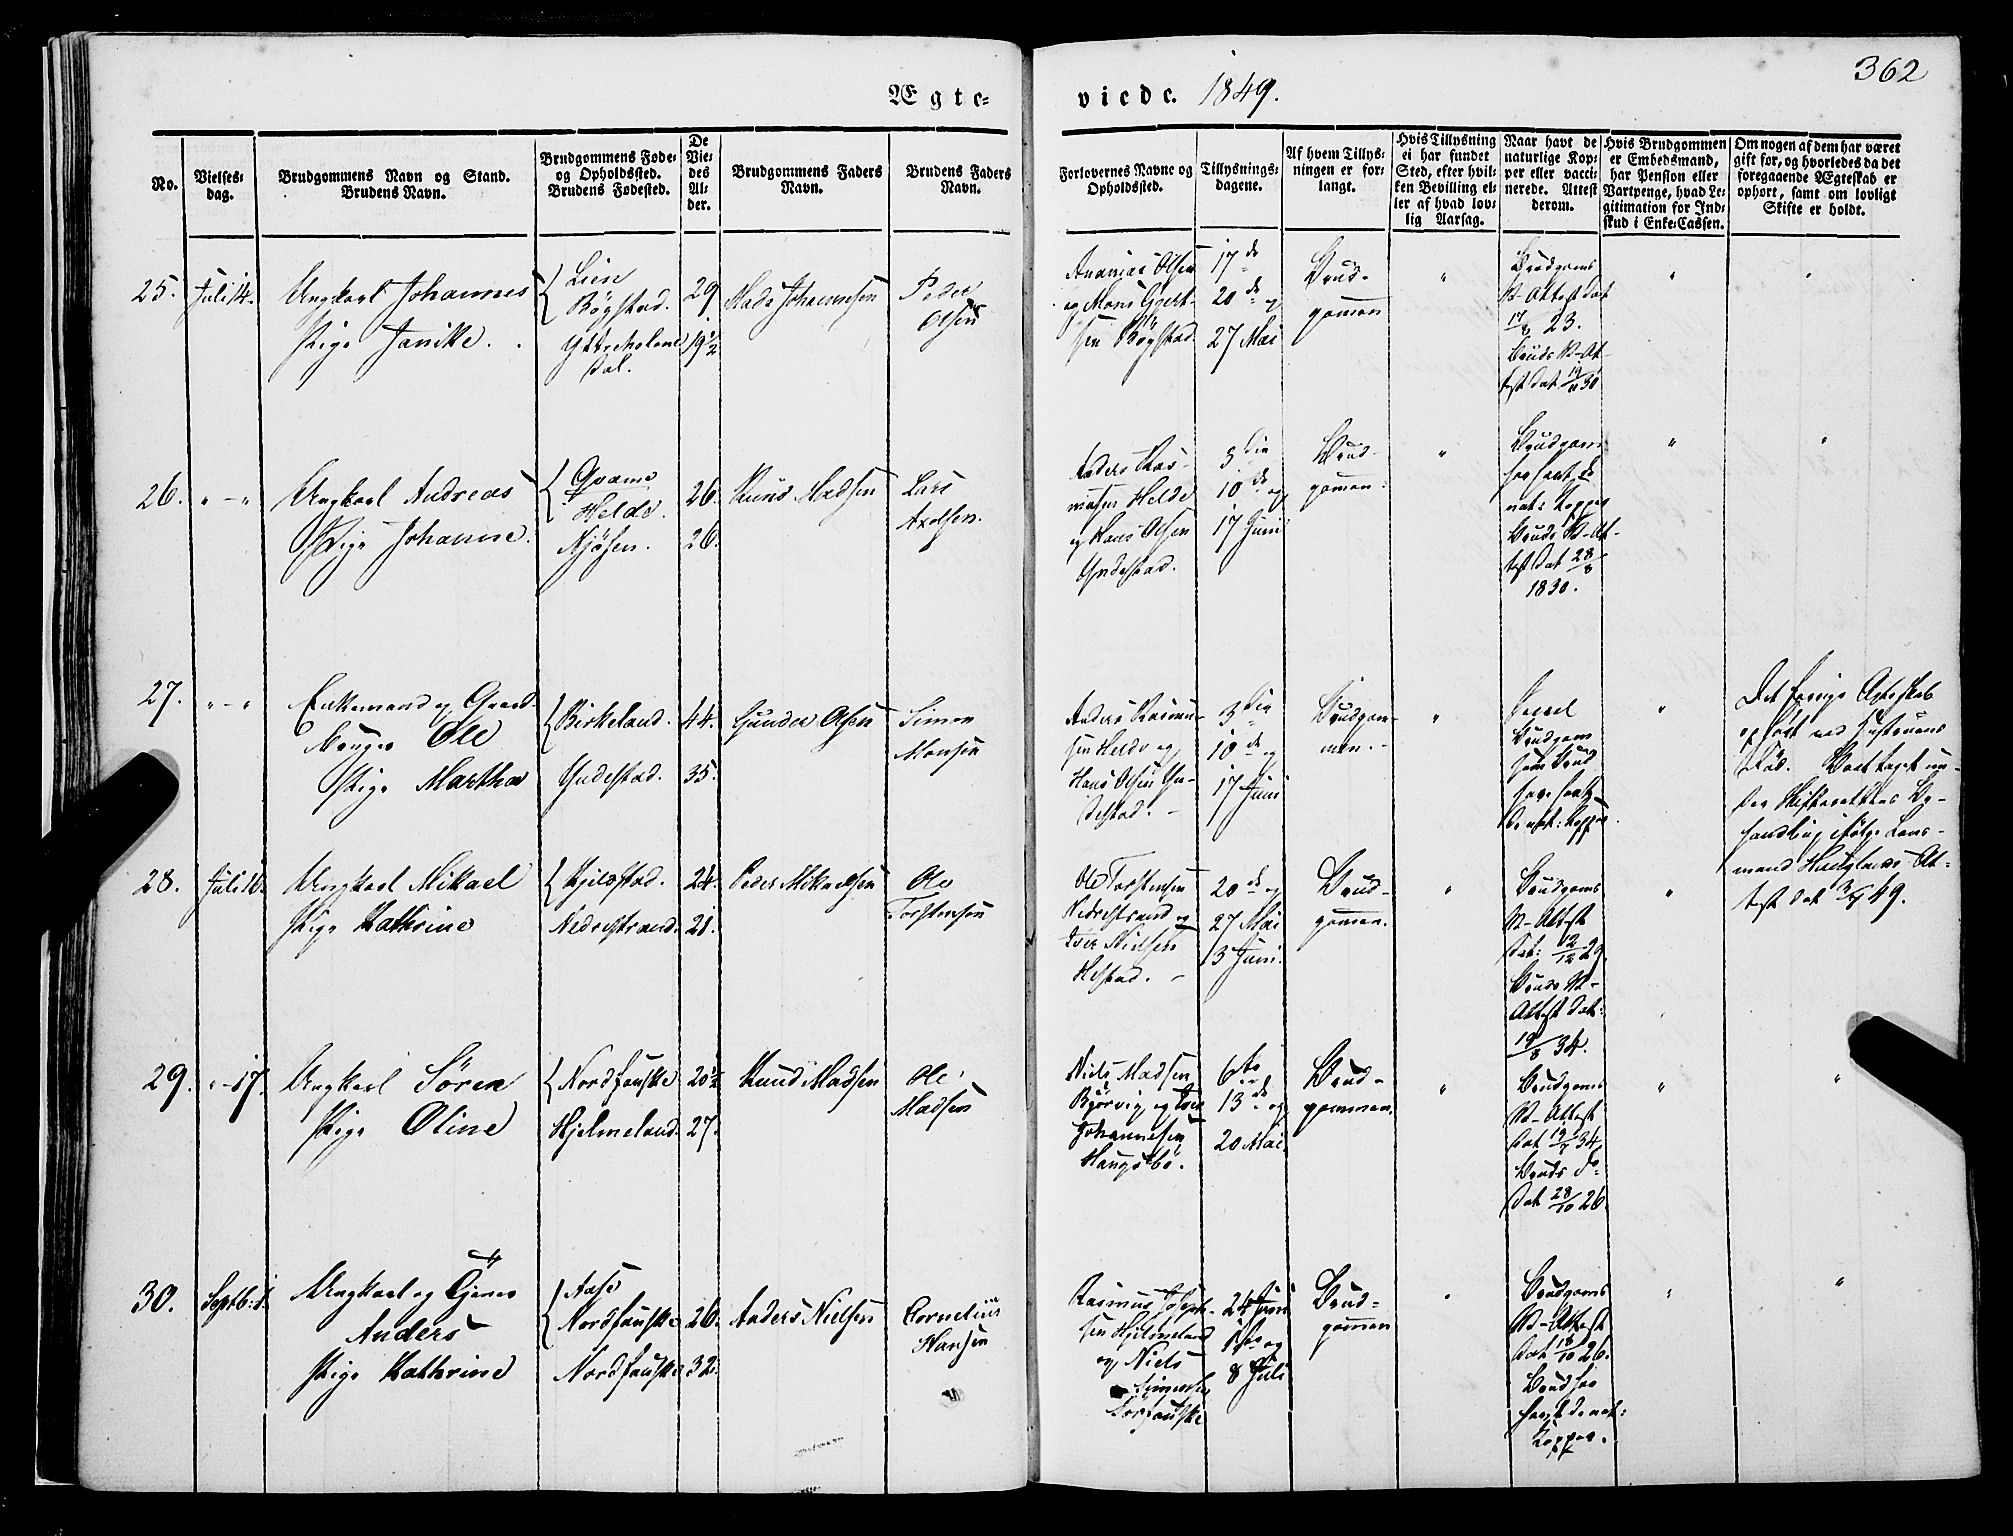 362
Ægte- viede. 1849.
No.
Vielses-
dag.
Brudgommens Navn og Stand.
Brudens Navn.
Brudgommens Føde-
og Opholdssted.
Brudens Fødested.
De
Vie-
des
Al-
der.
Brudgommens Faders
Navn.
Brudens Faders
Navn.
Forlovernes Navne og
Opholdssted.
Tillysnings-
dagene.
Af hvem Tillys-
ningen er for-
langt.
Hvis Tillysning
ei har fundet
Sted, efter hvil-
ken Bevilling el-
ler af hvad lov-
lig Aarsag.
Naar havt de
naturlige Kop-
per eller vacci-
nerede. Attest
derom.
Hvis Brudgommen
er Embedsmand,
har Pension eller
Vartpenge, hvad Le-
gitimation for Ind-
skud i Enke-Cassen.
Om nogen af dem har været
gift før, og hvorledes da det
foregaaende Ægteskab er
ophørt, samt om lovligt
Skifte er holdt.
25. Juli 14.
Ungkarl Johannes
Pige Janikke.
Lien
Bøgstad.
Yttreholme
dal.
29
19 1/2
Mads Johannesen
Peder
Olsen
Ananias Olsen
og Mons Gjert-
sen Bøgstad
17de
20de og
27 Mai
Brud-
gomen
"
Brudgoms
V-Attest dat
17/8 23.
Bruds V-At-
test dat 19/11 30
"
"
26. " - "
Ungkarl Andreas
Pige Johanne.
Qvame
Helde.
Njøsen.
26.
26.
Knud Madsen
Lars
Axelsen.
Anders Ras-
musen Helde
og Hans Olsen
Yndestad.
3die
10de og
17 Juni
Brud-
gomen.
"
Brudgom
har havt de
nat: Kopper
Bruds V-At-
test dat 28/8
1830.
"
"
27. " - "
Enkemand og Gaard-
bruger Ole
Pige Martha
Birkeland.
Yndestad.
44.
35.
Gunder Olsen
Simon
Monsen
Anders Rasmu-
sen Helde og
Hans Olsen Yn-
destad. -
3die
10de og
17 Juni
Brudgom-
men. -
"
Saavel
Brudgom
som Brud
have havt
de nat: Kopper.
"
Det forrige Ægteskab
ophørt ved Hustruens
Død. Boet taget un-
der Skifterettens Be-
handling ifølge Lens-
mand At-
test dat 49.
28. Juli 16.
Ungkarl Mikael
Pige Kathrine
Gjilsstad.
Nedrestrand.
24.
21.
Peder Mikaelsen
Ole
Torstensen
Ole Torstensen
Nedrestrand og
Iver Nielsen
Helstad. -
20de og
27 Mai
3 Juni.
Brud-
gomen.
"
Brudgoms
V-Attest
dat: 12/12 29.
Bruds V-
Attest dat:
19/8 34.
"
29. " - 17.
Ungkarl Søren
Pige Oline
Nordfauske
Hjelmeland.
20 1/2
27.
Knud Madsen
Ole
Madsen
Niels Madsen
Bjørvig og Iver
Johannesen
Haugsbø.
6te
13de og
20 Mai.
Brud-
gommen.
"
Brudgoms
V-Attest
dat 19/7 34
Bruds do
dat 28/10 26.
"
"
30. Septb: 1.
Ungkarl og
Anders
Pige Kathrine
Aase
Nordfauske
Nordfauske
26.
32.
Anders Nielsen
Cornelius
Hansen
Rasmus Joseph-
sen Hjelmeland
og Niels
Simonsen
Norfauske
24 Juni
1ste og
8 Juli
Brud-
gomen
"
Brudgoms
V-Attest
dat 18/10 26.
Brud har
havt de nat:
Kopper.
"
"